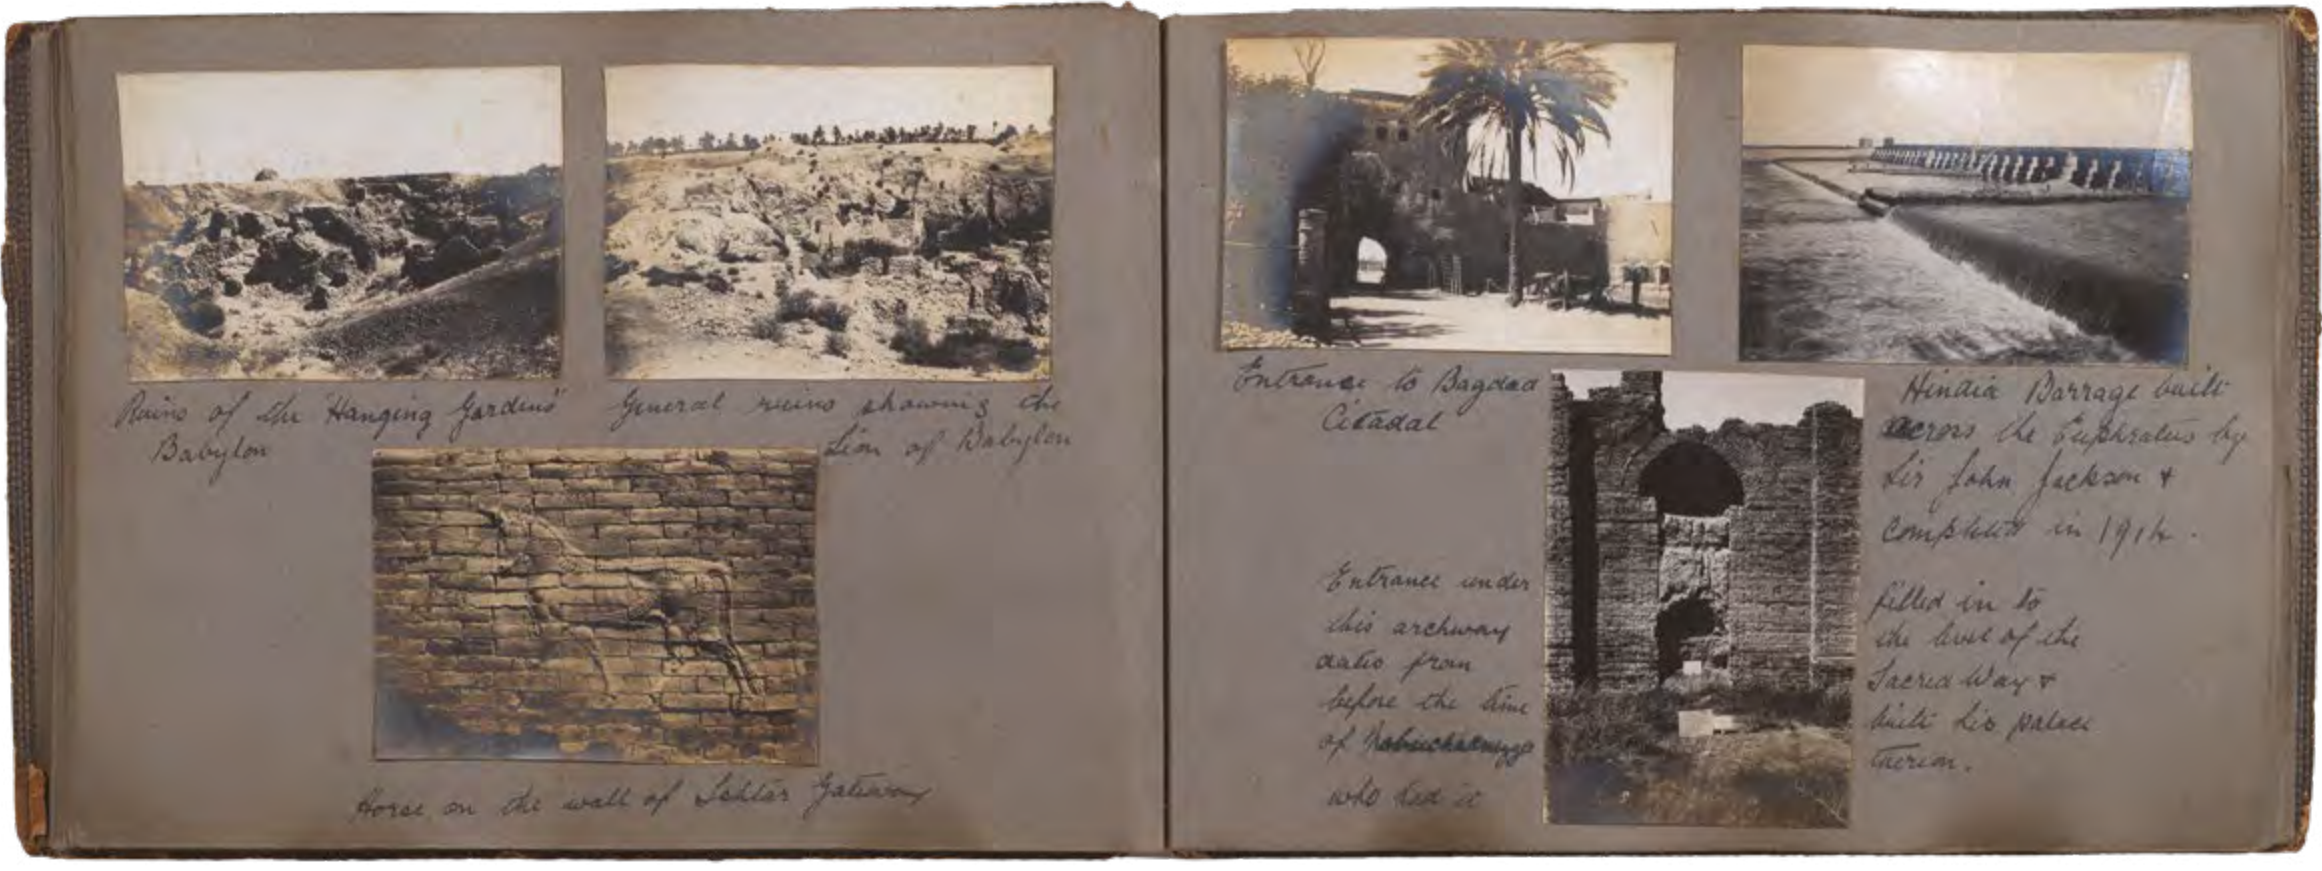 Ruins of the "Hanging Gardens"
Babylon
General ruins showing the
Lion of Babylon
Horse on the wall of Ishtar Gateway
Entrance to Bagdad
Citadal
Hindia Barrage built
across the Euphrates by
Sir John Jackson &
completed in 1914.
Entrance under
this archway
dates from
before the time
of
who had it
filled in to
the level of the
Sacred Way &
built his palace
thereon.